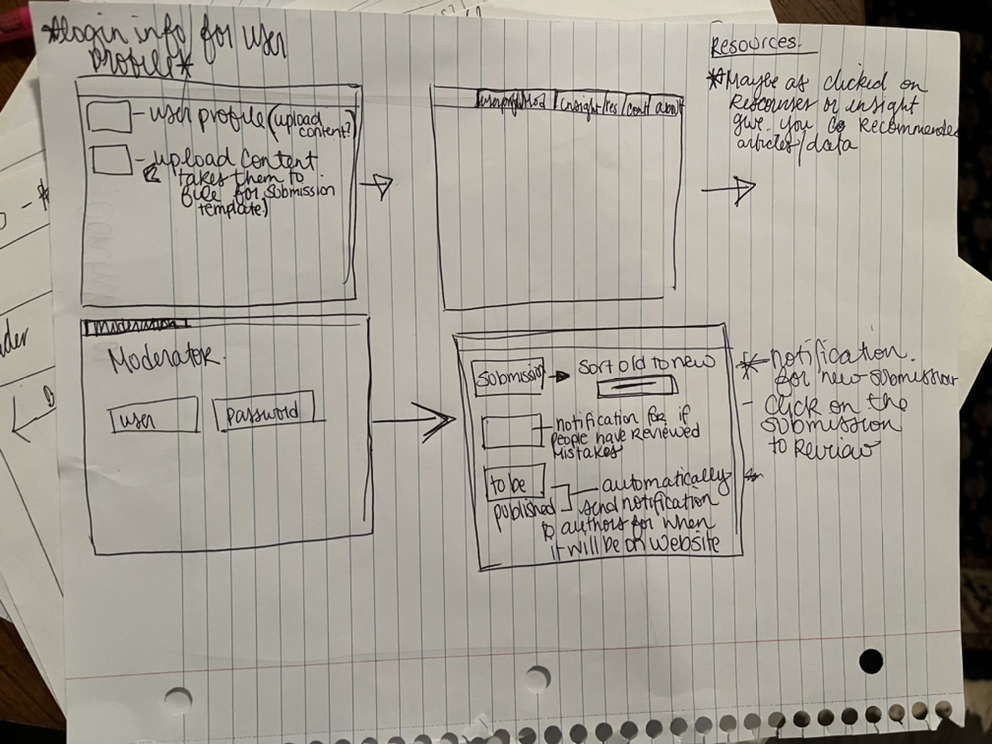 *login info for user
profile*
- user profile (upload
content?)
- upload content
takes them to
file for submission
template)
userprof/Mod/insight/res/cont/about
Resources.
*Maybe as clicked on
Rescourses or insight
give you Recommended
articles/data
Moderation
Moderator.
user
password
submission
sort old to new
- notification for if
people have reviewed
mistakes
to be
published
- automatically
send notification
to authors for when
it will be on website
* notification.
for new submission
- click on the
submission
to review
der